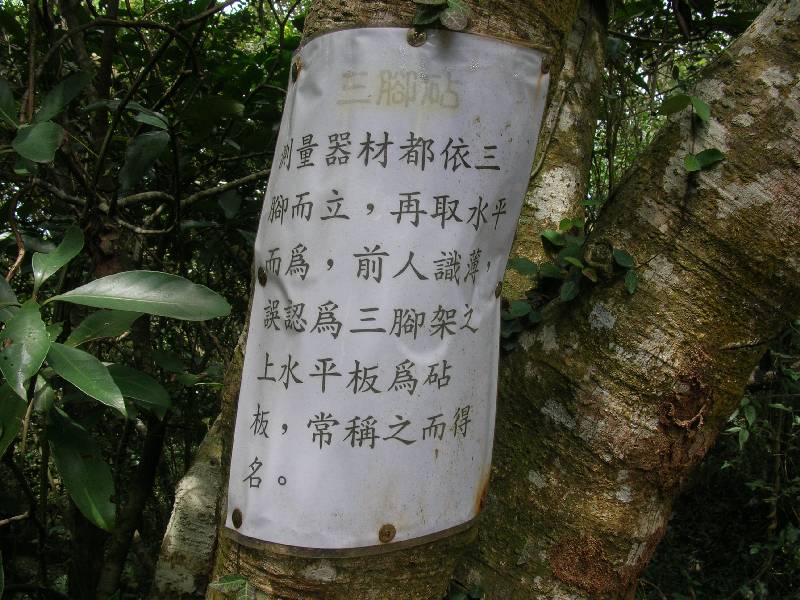 三腳砧
測量器材都依三
腳而立，再取水平
而為，前人識薄，
誤認為三腳架之
上水平板為砧
板，常稱之而得
名。